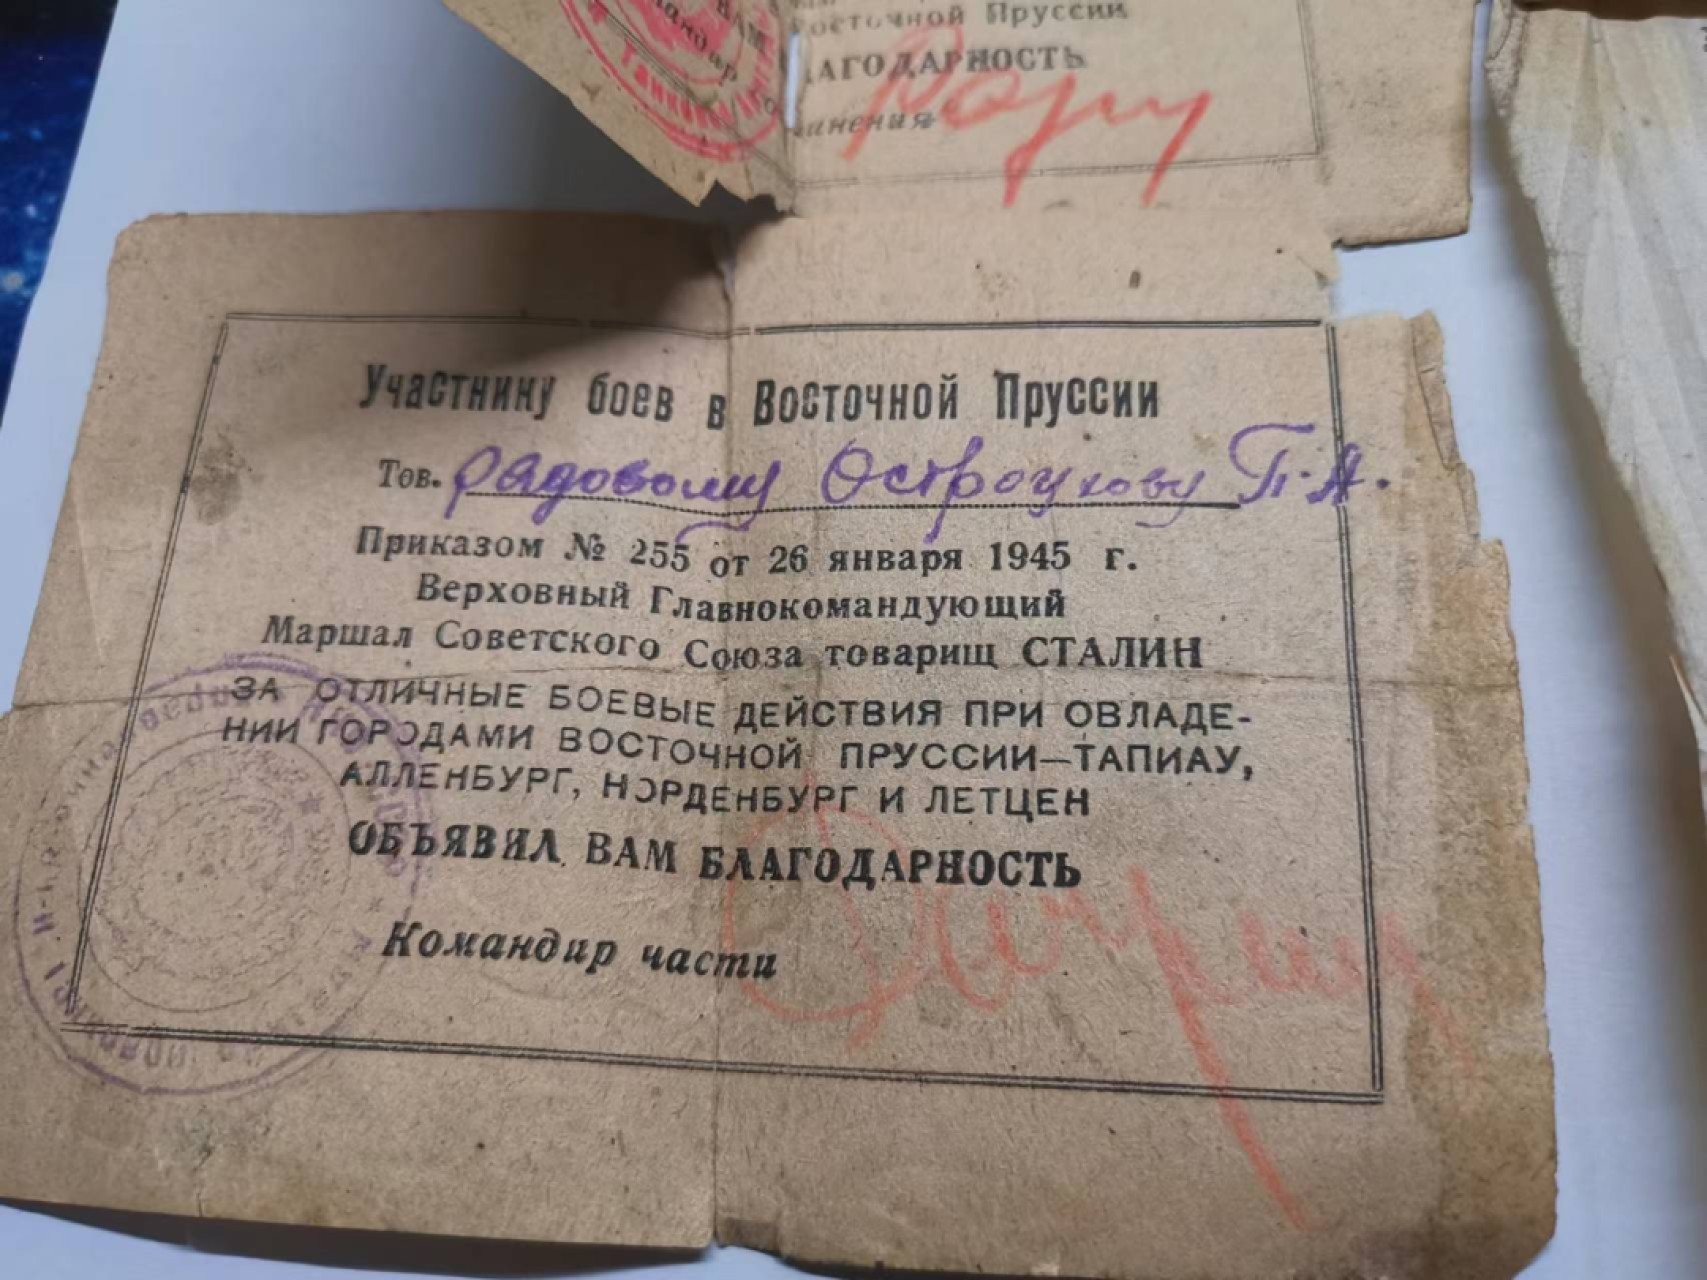 Восточной Пруссии
ВАМ
АГОДАРНОСТЬ
инения
Участнику боев в Восточной Пруссии
Тов. рядовому Остроухову П.А.
Приказом № 255 от 26 января 1945 г.
Верховный Главнокомандующий
Маршал Советского Союза товарищ СТАЛИН
ЗА ОТЛИЧНЫЕ БОЕВЫЕ ДЕЙСТВИЯ ПРИ ОВЛАДЕ-
НИИ ГОРОДАМИ ВОСТОЧНОЙ ПРУССИИ—ТАПИАУ,
АЛЛЕНБУРГ, НОРДЕНБУРГ И ЛЕТЦЕН
ОБЪЯВИЛ ВАМ БЛАГОДАРНОСТЬ
Командир части